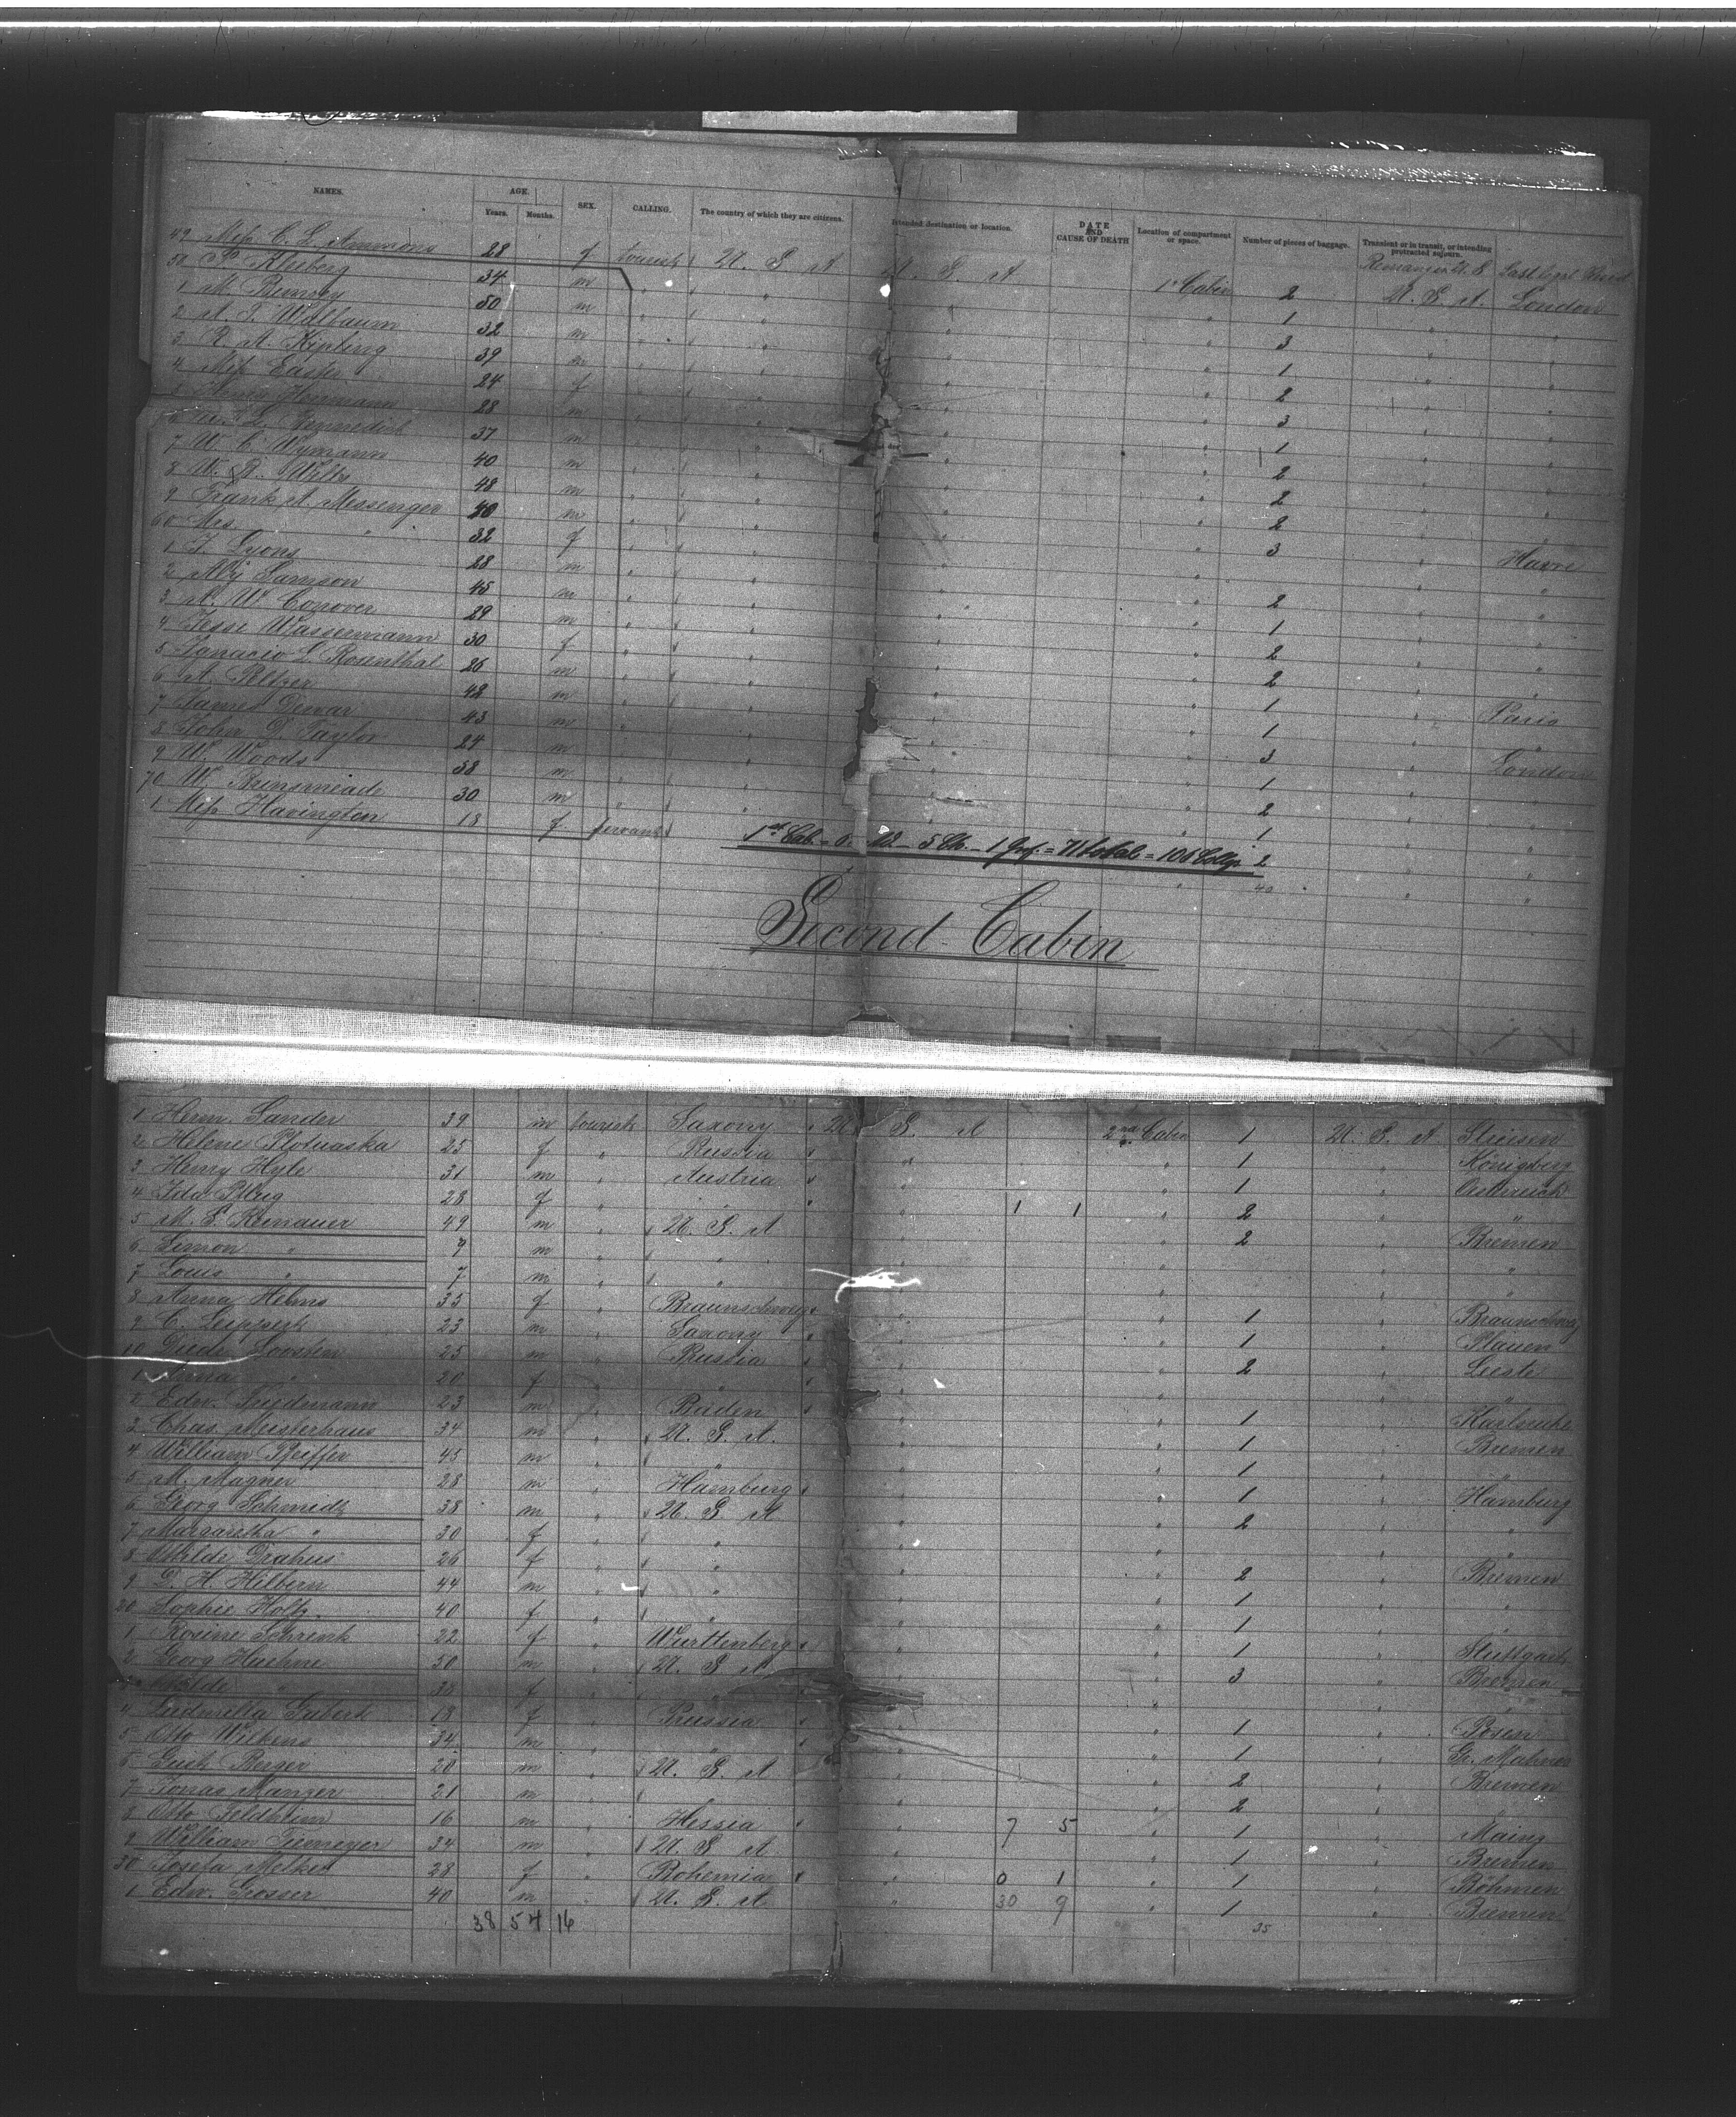 NAMES. AGE. Years. Months. SEX. CALLING. The country of which they are citizens. Intended destination or location. DATE AND CAUSE OF DEATH Location of compartment or space. Number of pieces of baggage. Transient or in transit, or intending protracted sojourn.
49 Miss C. L. Ammons 28 f tourist U. S. A U. S. A 1st Cabin 2 U. S. A. London
50 34 m " " " " 1 " "
1 M. 50 m " " " " 3 " "
2 A. J. Wilbaum 32 m " " " " 1 " "
3 R. A. Kipling 39 m " " " " 2 " "
4 Miss Easter 24 f " " " " 3 " "
5 Herrmann 28 m " " " " 1 " "
6 37 m " " " " 2 " "
7 W. C. Wymann 40 m " " " " 2 " "
8 W. R. Wells 48 m " " " " 2 " "
9 Frank A. Messenger 40 m " " " " 3 " Havre
60 Mrs. " 32 f " " " " " "
1 J. Lyons 28 m " " " " 2 " "
2 Samson 45 m " " " " 1 " "
3 A. W. Conover 29 m " " " " 2 " "
4 Jesse Wassermann 30 f " " " " 2 " "
5 Ignacio L. Rosenthal 26 m " " " " 1 " Paris
6 A. Peltzer 42 m " " " " 1 " "
7 James Dewar 43 m " " " " 3 " London
8 John D. Taylor 24 m " " " " 1 " "
9 W. Woods 38 m " " " " 2 " "
70 W. 30 m " " " " 1 " "
1 Miss Havington 18 f servant " " " 2 " "
1st Cab. 5 Ch. - 1 Inf. = 71 total = 106 Collys
40
Second Cabin
1 Herm. Sander 39 m tourist Saxony U. S. A 2nd Cabin 1 U. S. A
2 Helene Plotuaska 25 f " Russia " " 1 " Königsberg
3 Henry Hyle 31 m " Austria " " 1 " Oesterreich
4 Ida Pflug 28 f " " " 1 1 " 2 " "
5 M. S. Remauer 49 m " U. S. A " " 2 " Bremen
6 Simon " 7 m " " " " "
7 Louis " 7 m " " " " "
8 Anna Helms 35 f " Braunschweig " " 1 " Braunschweig
9 C. Leippert 23 m " Saxony " " 1 " Plauen
10 Diedr. Loosten 25 m " Prussia " " 2 " Leeste
1 Anna " 20 f " " " " " "
2 Edw. Freidmann 23 m " Baden " " 1 " Karlsruhe
3 Chas. Meisterhans 34 m " U. S. A. " " 1 " Bremen
4 William Pfeiffer 45 m " " " " 1 " "
5 M. Magner 28 m " Hamburg " " 1 " Hamburg
6 Georg Schmidt 38 m " U. S. A " " 2 " "
7 Margaretha " 30 f " " " " " "
8 26 f " " " " 2 " Bremen
9 D. H. Hilbern 44 m " " " " 1 " "
20 Sophie Holtz 40 f " " " " 1 " "
1 Rosine Schrenk 22 f " Württenberg " " 1 " Stuttgart
2 Georg Huehne 50 m " U. S. A " " 3 " Bremen
3 " f " " " " " "
4 Ludmilla 18 f " Prussia " " 1 " Posen
5 Otto Wilkens 34 m " " " " 1 " Gr.
6 Gust. Berger 20 m " U. S. A " " 2 " Bremen
7 Jonas Manger 21 m " " " " 2 " "
8 Otto Feldheim 16 m " Hessia " 7 5 " 1 " Mainz
9 William Tiemeyer 34 m " U. S. A " " 1 " Bremen
30 Josefa Melker 28 f " Bohemia " 0 1 " 1 " Böhmen
1 Edw. Grosser 40 m " U. S. A. " 30 9 " 1 " Bremen
38 54 16 35